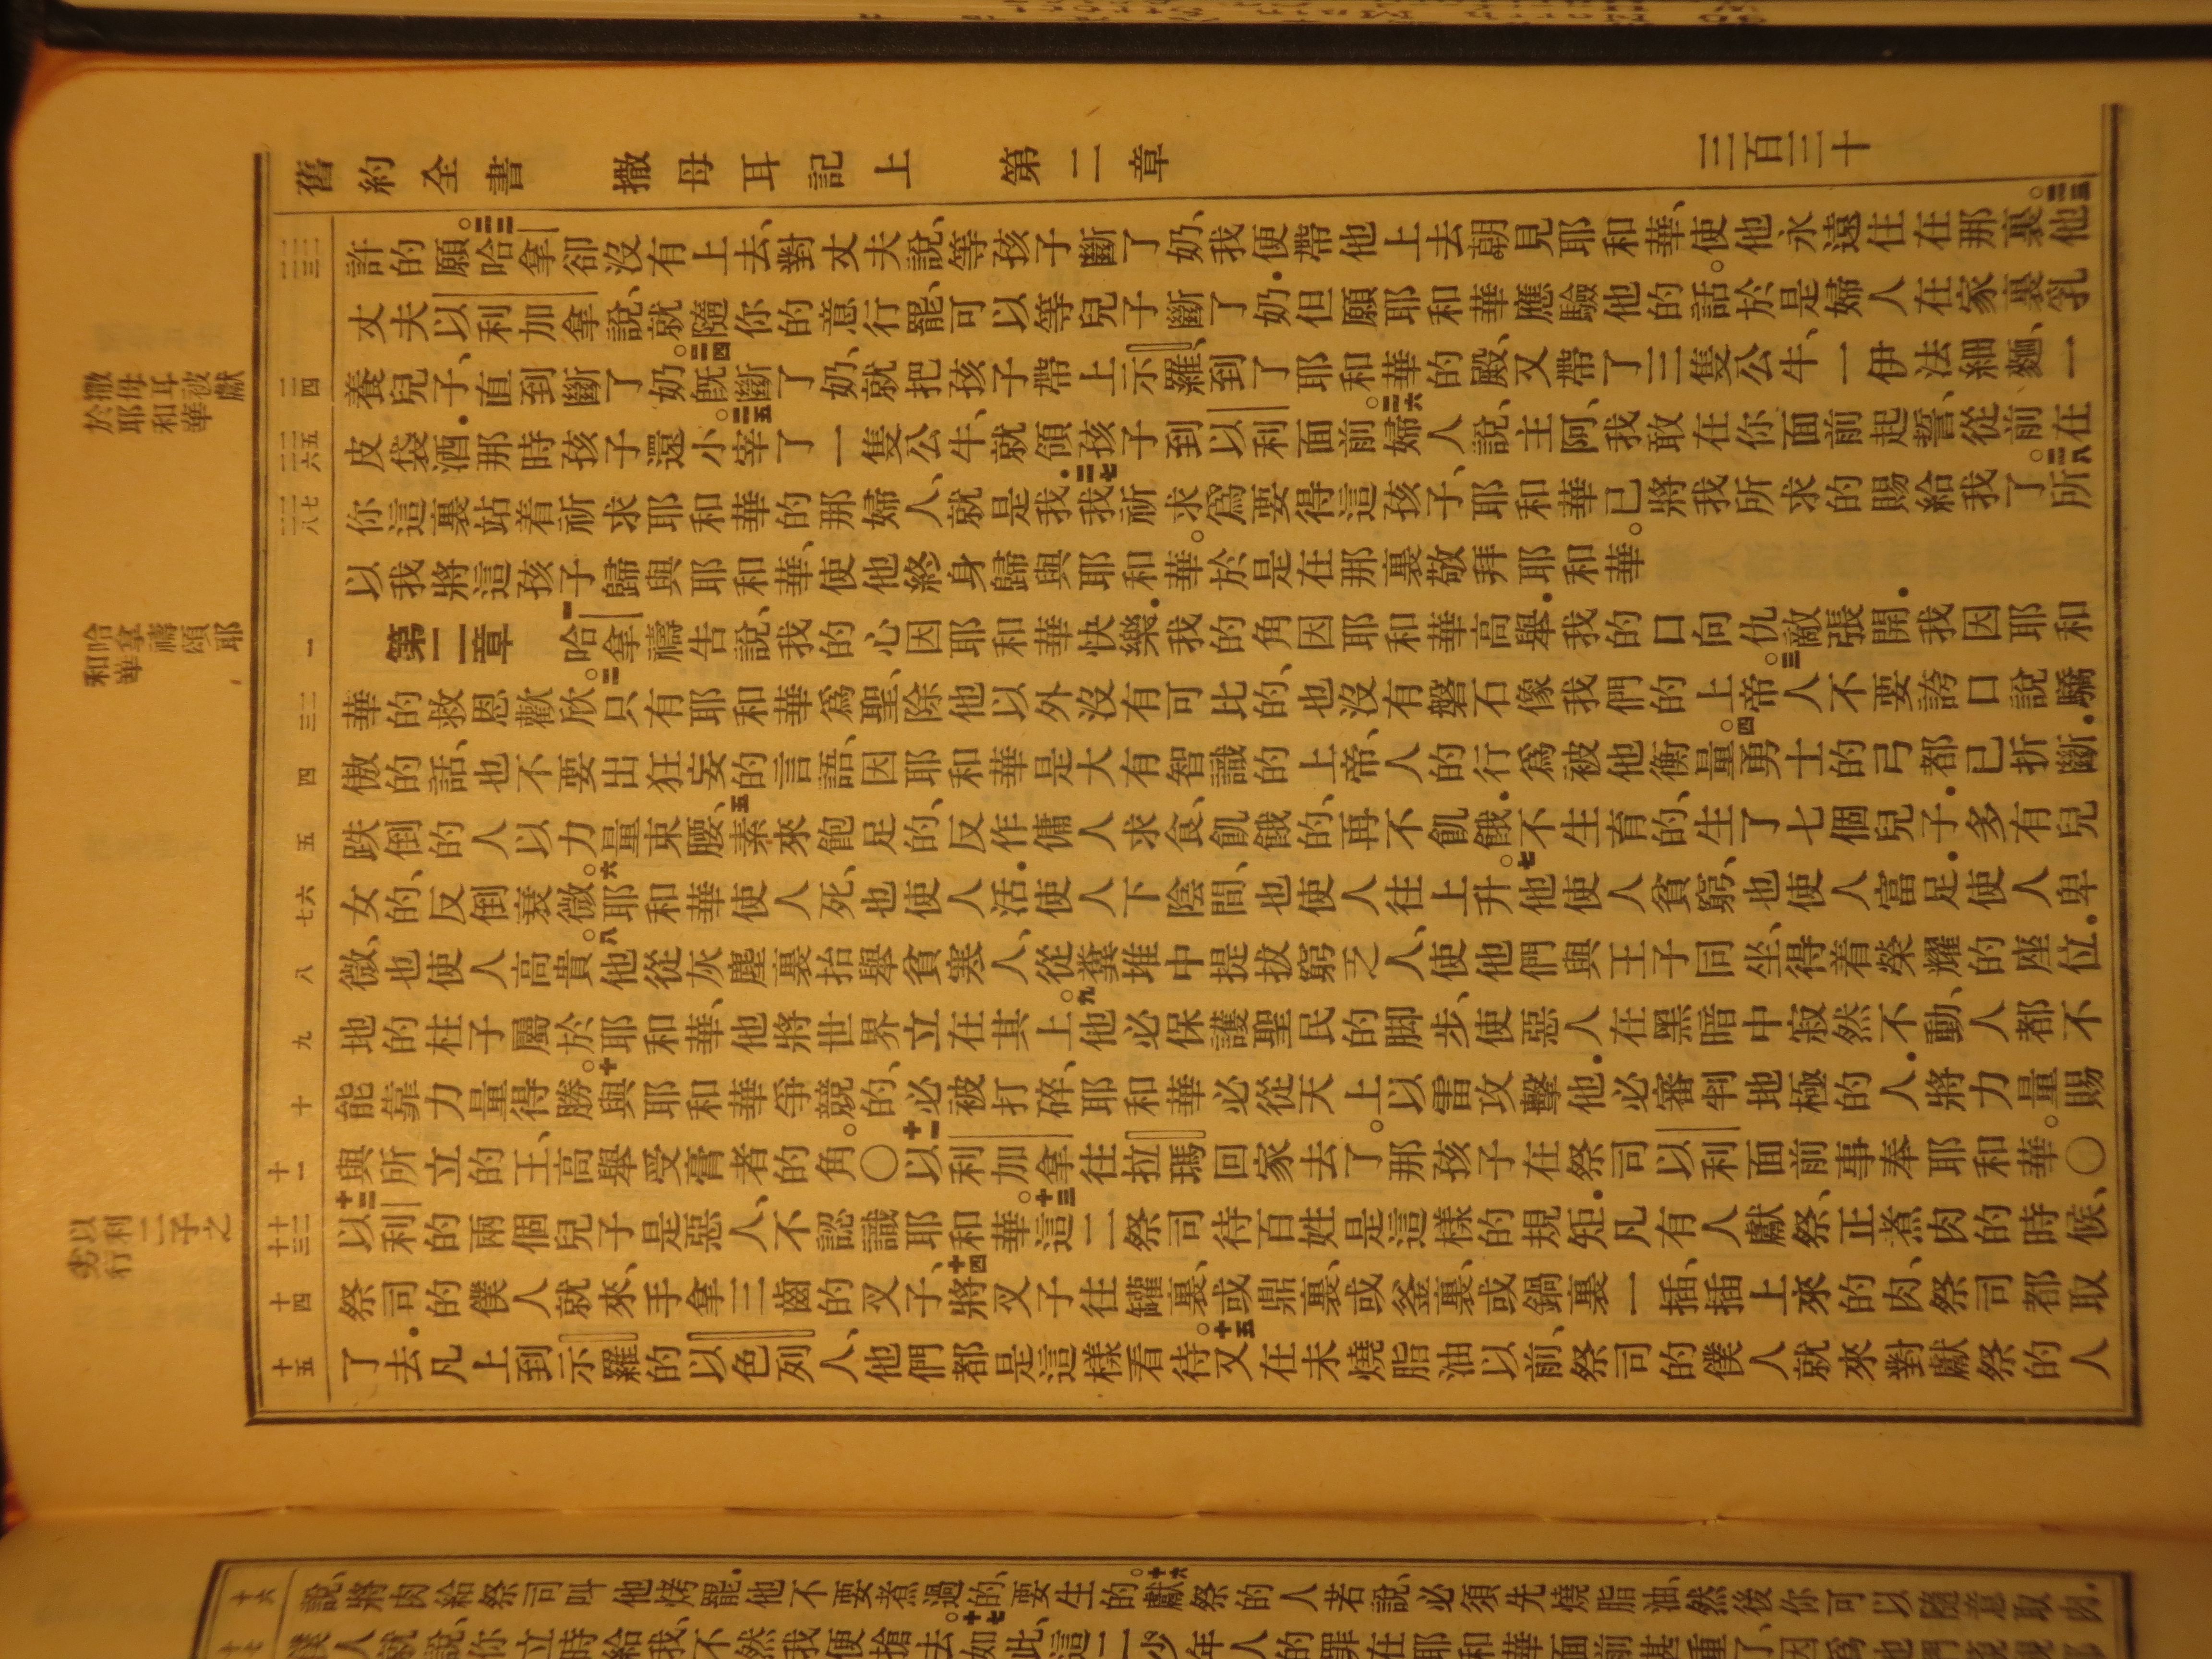 舊約全書 撒母耳記上 第二章 三百三十
許的願。哈拿卻沒有上去、對丈夫說、等孩子斷了奶、我便帶他上去朝見耶和華、使他永遠住在那裏。他
丈夫以利加拿說、就隨你的意行罷、可以等兒子斷了奶．但願耶和華應驗他的話。於是婦人在家裏乳
養兒子、直到斷了奶。既斷了奶、就把孩子帶上示羅、到了耶和華的殿、又帶了三隻公牛、一伊法細麵、一
皮袋酒．那時孩子還小。宰了一隻公牛、就領孩子到以利面前。婦人說、主阿、我敢在你面前起誓、從前在
你這裏站着祈求耶和華的那婦人、就是我．我祈求爲要得這孩子、耶和華已將我所求的賜給我了。所
以我將這孩子歸與耶和華、使他終身歸與耶和華。於是在那裏敬拜耶和華。
第二章 哈拿禱告說、我的心因耶和華快樂．我的角因耶和華高舉．我的口向仇敵張開．我因耶和
華的救恩歡欣。只有耶和華爲聖、除他以外沒有可比的、也沒有磐石像我們的上帝。人不要誇口說驕
傲的話、也不要出狂妄的言語、因耶和華是大有智識的上帝、人的行爲被他衡量。勇士的弓都已折斷．
跌倒的人以力量束腰、素來飽足的、反作傭人求食、飢餓的、再不飢餓．不生育的、生了七個兒子．多有兒
女的、反倒衰微。耶和華使人死、也使人活．使人下陰間、也使人往上升。他使人貧窮、也使人富足．使人卑
微、也使人高貴。他從灰塵裏抬舉貧寒人、從糞堆中提拔窮乏人、使他們與王子同坐、得着榮耀的座位．
地的柱子屬於耶和華、他將世界立在其上。他必保護聖民的脚步、使惡人在黑暗中寂然不動、人都不
能靠力量得勝。與耶和華爭競的、必被打碎、耶和華必從天上以雷攻擊他．必審判地極的人．將力量賜
與所立的王、高舉受膏者的角。○以利加拿往拉瑪回家去了。那孩子在祭司以利面前事奉耶和華。○
以利的兩個兒子是惡人、不認識耶和華。這二祭司待百姓是這樣的規矩．凡有人獻祭、正煮肉的時候、
祭司的僕人就來、手拿三齒的叉子、將叉子往罐裏、或鼎裏、或釜裏、或鍋裏一插、插上來的肉、祭司都取
了去．凡上到示羅的以色列人、他們都是這樣看待。又在未燒脂油以前、祭司的僕人就來對獻祭的人
撒母耳被獻
於耶和華
哈拿禱頌耶
和華
以利二子之
劣行
說、將肉給祭司叫他烤罷．他不要煮過的、要生的。獻祭的人若說、必須先燒脂油、然後你可以隨意取肉．
僕人就說、你立時給我、不然我便搶去。如此、這二少年人的罪在耶和華面前甚重了、因爲他們